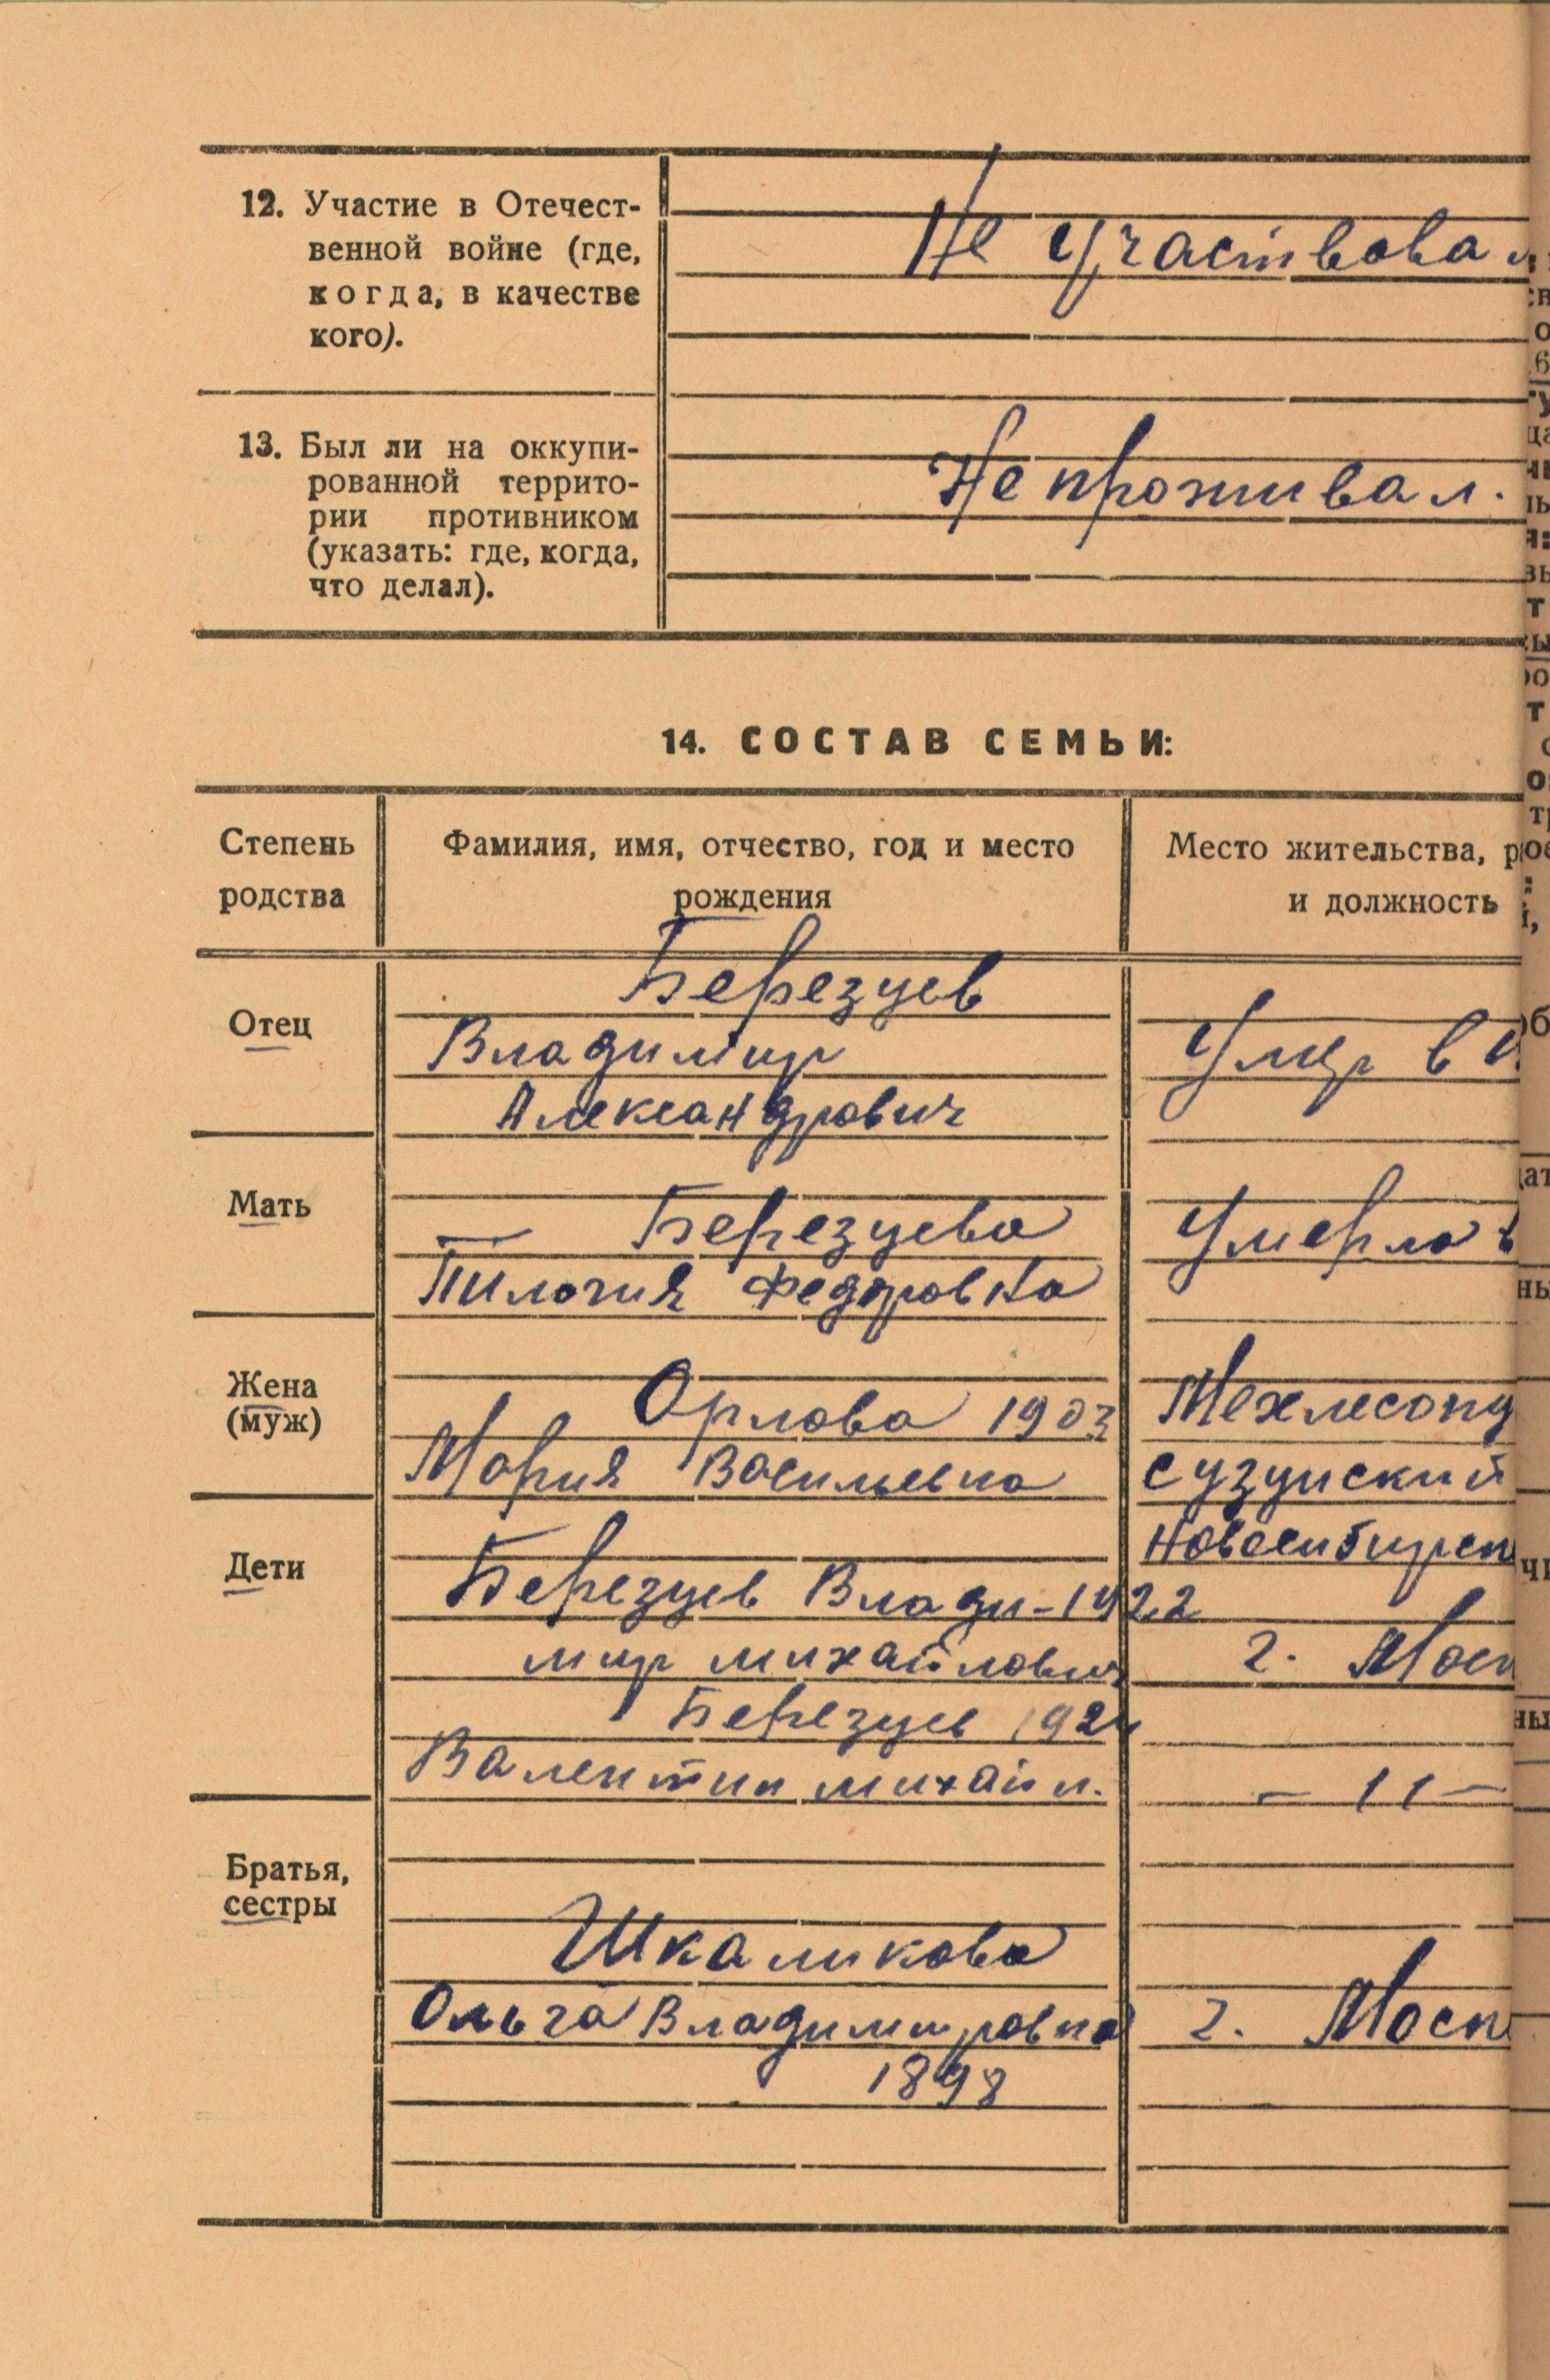 12. Участие в Отечест-
венной войне (где,
когда, в качестве
кого).
Не участвовал
13. Был ли на оккупи-
рованной террито-
рии противником
(указать: где, когда,
что делал).
Не проживал.
14. СОСТАВ СЕМЬИ:
Степень
родства
Фамилия, имя, отчество, год и место
рождения
Место жительства, р
и должность
Отец
Березуев
Владимир
Александрович
Умер в
Мать
Березуева
Пилагия Федоровна
Умерла в
Жена
(муж)
Орлова 1903
Мария Васильевна
Мехлесопу
Сузунский
Новосибирск
Дети
Березуев Влади- 1922
мир михайлович
г. Моск
Березуев 1924
Валентин михайл.
— 11 —
Братья,
сестры
Шкаликова
Ольга Владимировна
г. Моск
1898